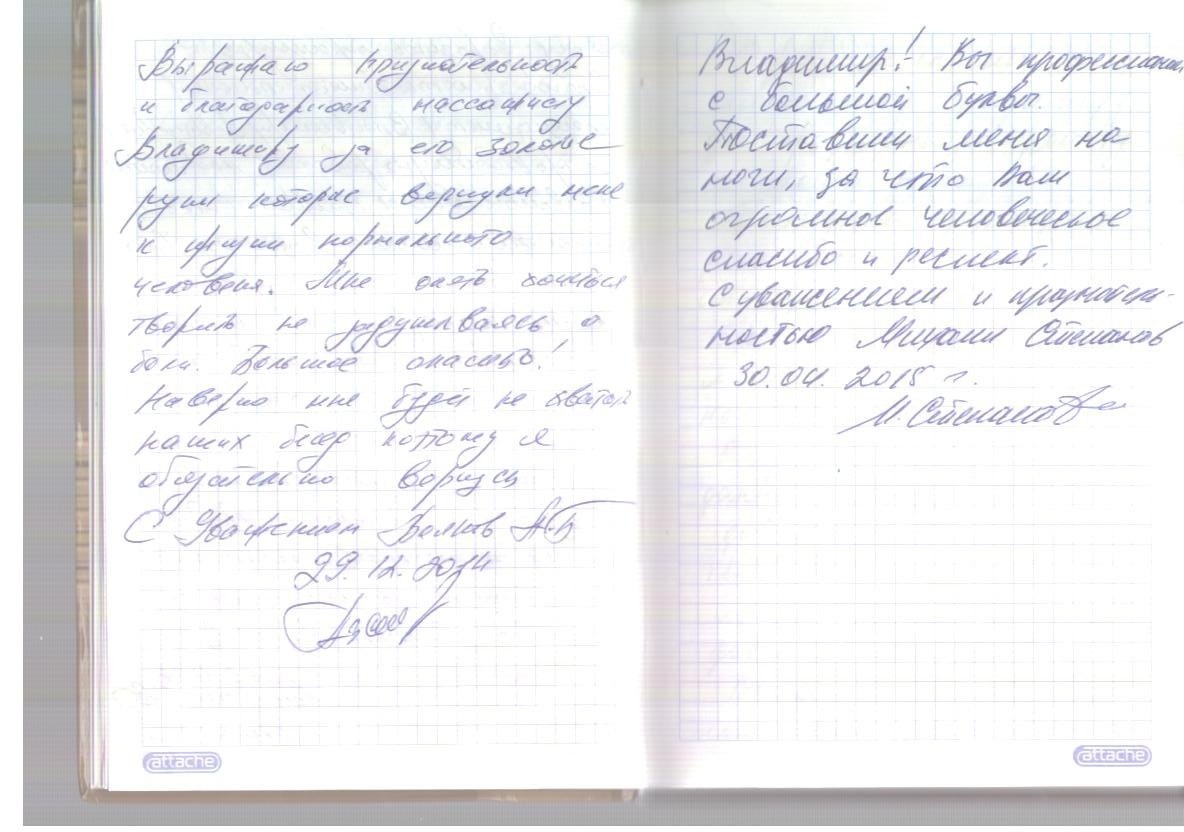 Выражаю признательность
и благодарность массажисту
Владимиру за его золотые
руки которые вернули меня
к жизни нормального
человека. Мне опять хочеться
творить не задумываясь о
боли. Большое спасибо!
Наверно мне будет не хватать
наших бесед поэтому я
обязательно вернусь
С Уважением А.В.
29.12.2014
attache
Владимир! Вы профессионал
с большой буквы.
Поставили меня на
ноги, за что Вам
огромное человеческое
спасибо и респект.
С уважением и признатель-
ностью Михаил Степанов
30.04. 2015 г.
М. Степанов
attache